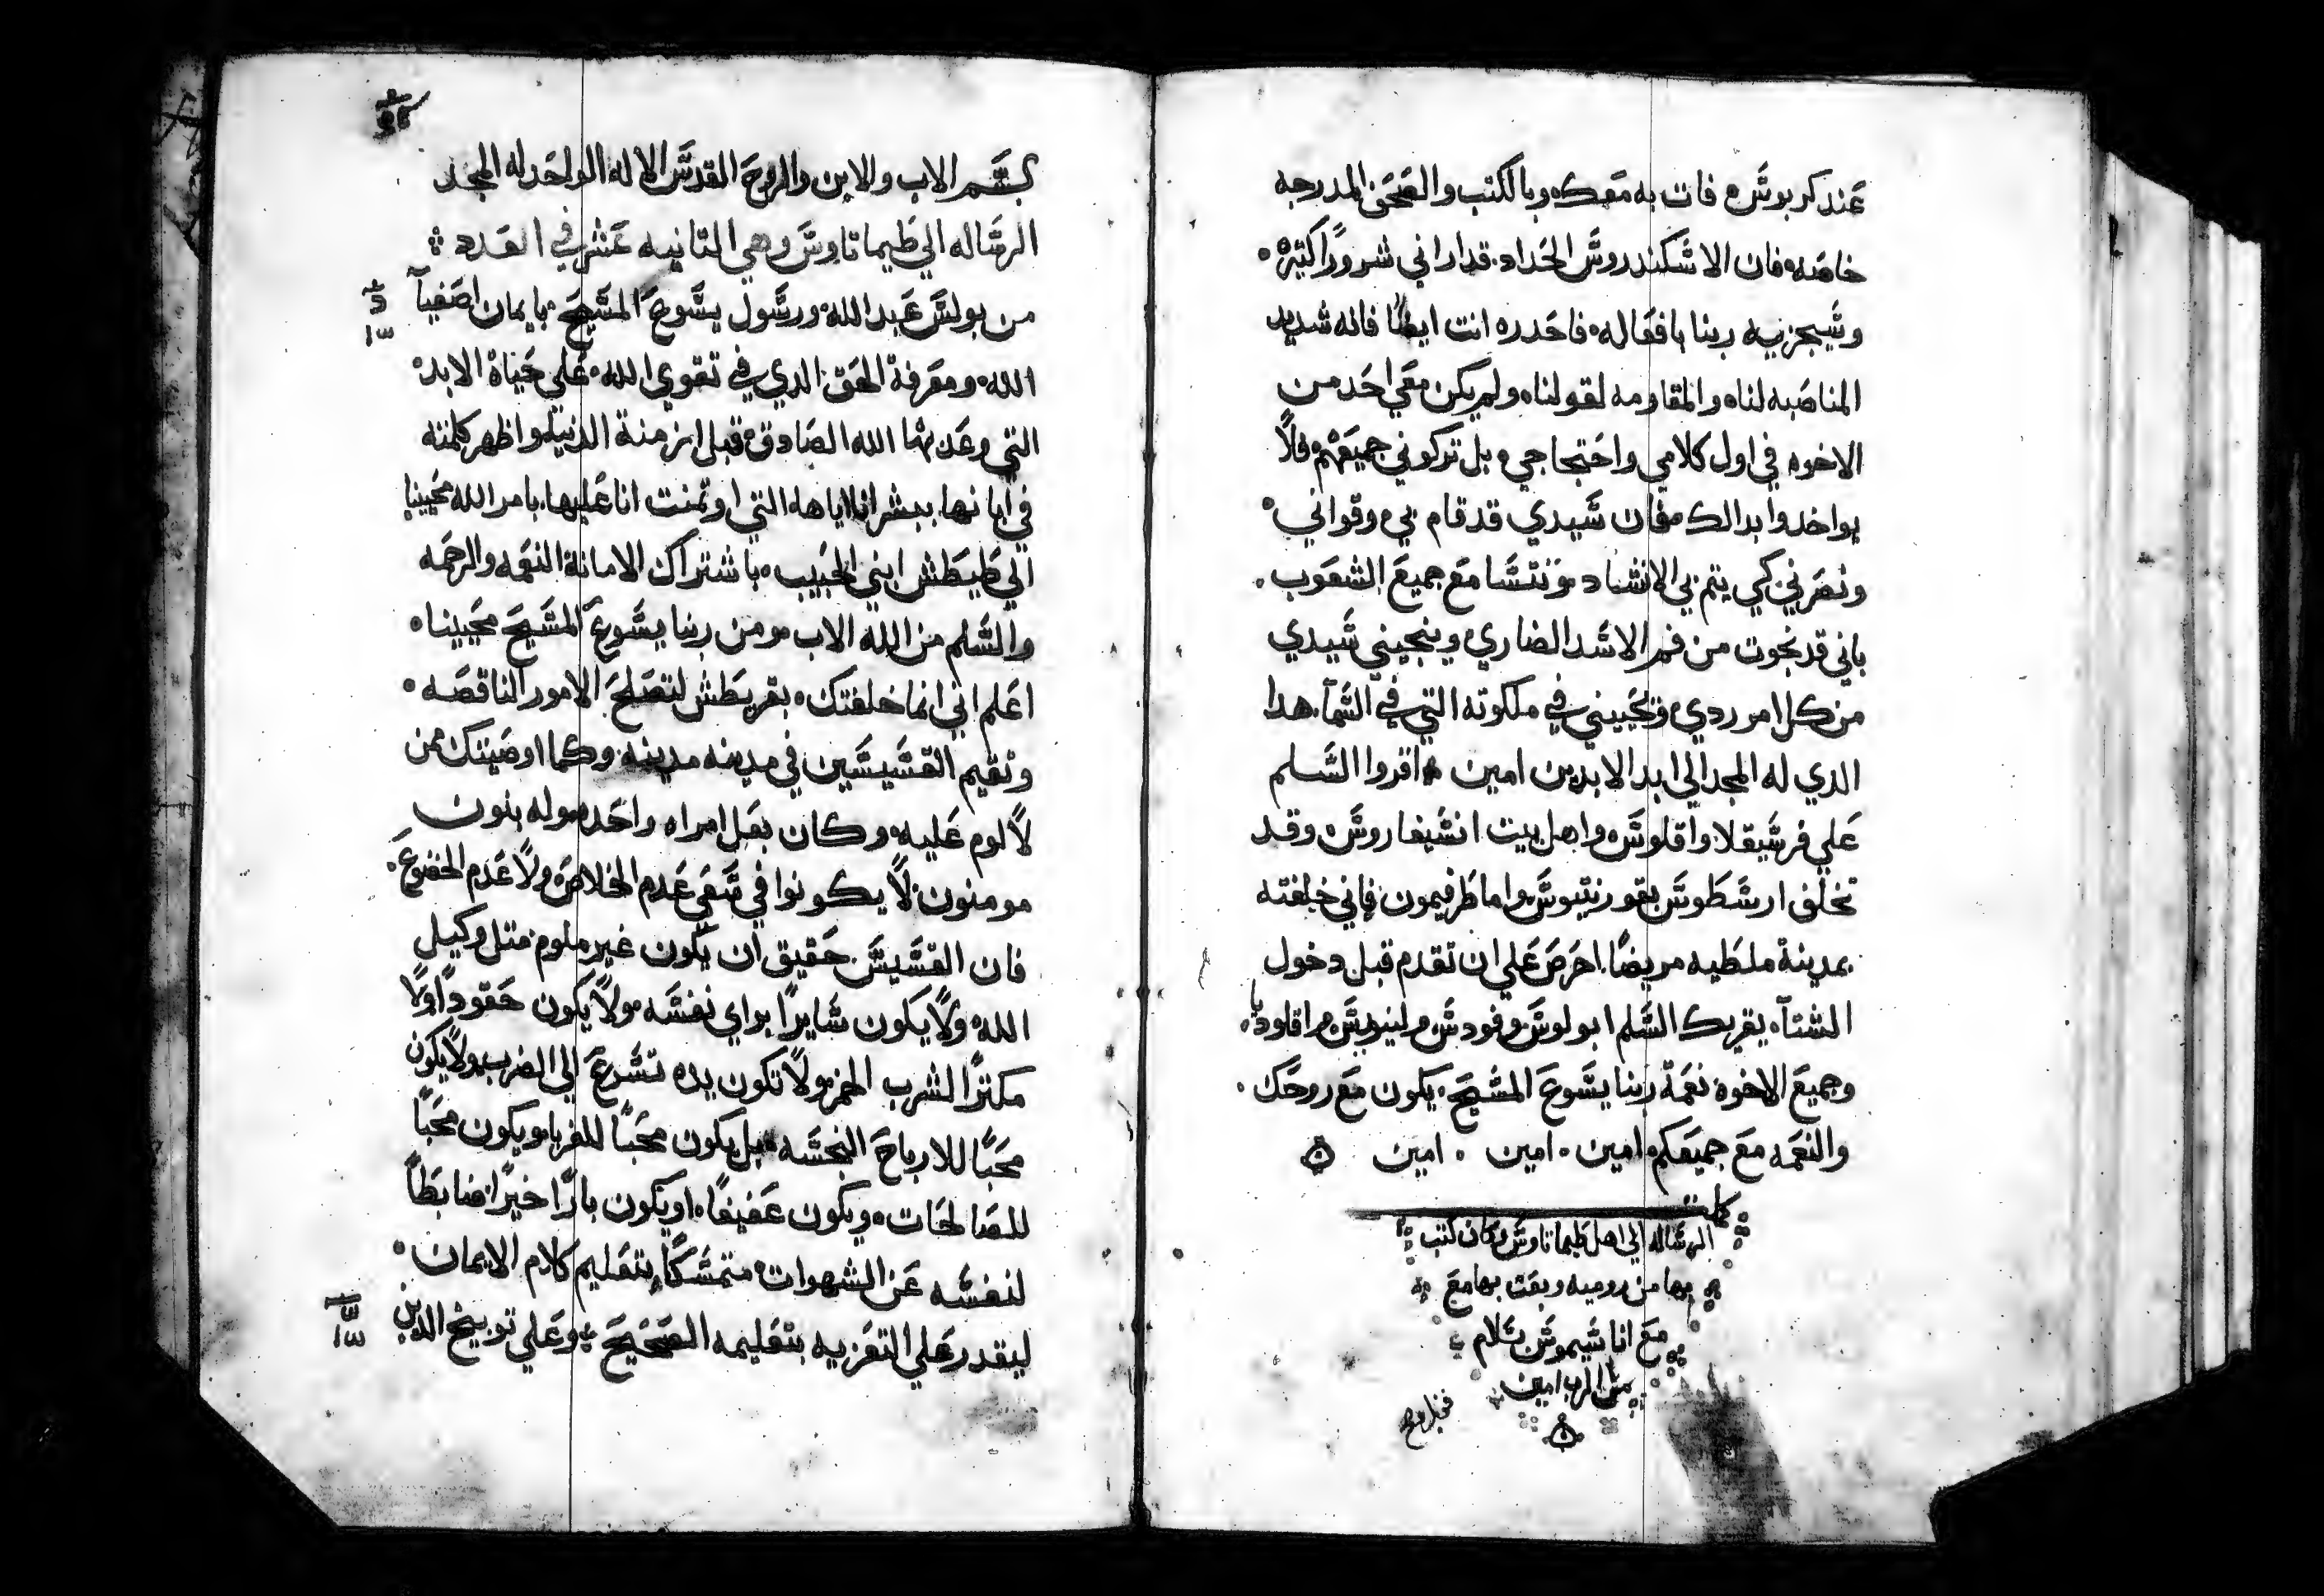 عند كربوس فات به معك وبالكتب والصحف المدرجه
خاصه فان الاسكندروس الحداد قد اراني شرورًا كثيرة
وسيجزيه ربنا بافعاله فاحدره انت ايضًا فانه شديد
المناصبه لنا والمقاومه لقولنا ولم يكن معي احد من
الاخوه في اول كلامي واحتجاجي بل تركوني جميعهم فلا
يواخدوا بدالك فان سيدي قد قام بي وقواني
ونصرني كي يتم بي الانشاد وتتسا مع جميع الشعوب
باني قد نجوت من فم الاسد الضاري وينجيني سيدي
من كل امر ردي ويحييني في ملكوته التي في السمآ هدا
الدي له المجد الي ابد الابدين امين اقروا السلم
علي فرسيقلا واقلوس واهل بيت انسيفاروس وقد
تخلف ارسطوس بقورنتيوس واما طرفيمون فاني خلفته
بمدينة ملطيه مريضًا احرص علي ان تقدم قبل دخول
الشتآ يقريك السلم ابولوس وفودس ولينوس واقلوديا
وجميع الاخوة نعمة ربنا يسوع المسيح يكون مع روحك
والنعمه مع جميعكم امين امين امين
كملت
الرساله الي اهل طيماتاوس وكان كتب
بها من روميه وبعت بها مع
مع اناسيموس سلام
من الرب امين
بسم الاب والابن والروح القدس الاله الواحد له المجد
الرساله الي طيماتاوس وهي التانيه عشر في العدد
من بولس عبد الله ورسول يسوع المسيح بايمان اصفيآ
الله ومعرفة الحق الدي في تقوي الله علي حياة الابد
التي وعد بها الله الصادق قبل ازمنة الدنيا واظهر كلمته
في ابانها ببشرانا اياها التي اوتمنت انا عليها بامر الله محيينا
الي طيطش ابني الحبيب باشتراك الامانة النعمه والرحمه
والسلم من الله الاب ومن ربنا يسوع المسيح محيينا
اعلم اني انما خلفتك بقريطش لتصلح الامور الناقصه
وتقيم القسيسين في مدينه مدينه وكما اوصيتك من
لا لوم عليه وكان بعل امراه واحده وله بنون
مومنون لا يكونوا في سعي عدم الخلاص ولا عدم الخضوع
فان القسيس حقيق ان يكون غير ملوم متل وكيل
الله ولا يكون سايرًا براي نفسه ولا يكون حقودًا ولا
مكترًا لشرب الخمر ولا تكون يده تسرع الي الضرب ولا يكون
محبًا للارباح النجسه بل يكون محبًا للغربا ويكون محبًا
للصالحات ويكون عفيفًا ويكون بارًا خيرًا ضابطًا
لنفسه عن الشهوات متمسكًا بتعليم كلام الايمان
ليقدر علي التعزيه بتعليمه الصحيح وعلي توبيخ الدين